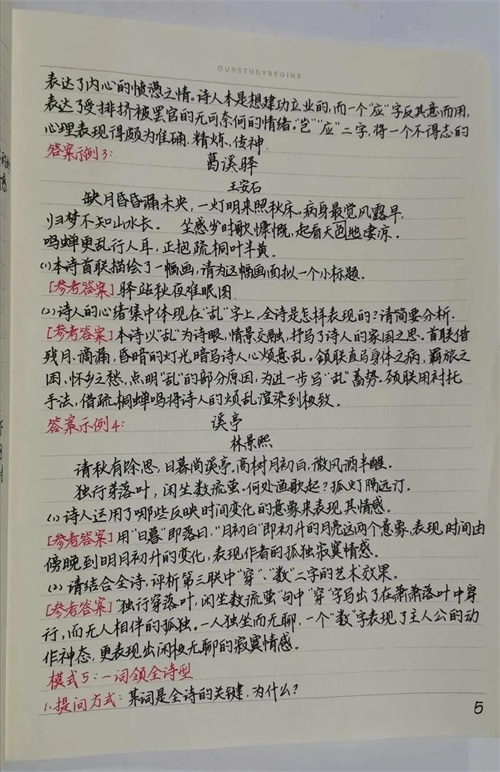 OURSTUDYBEGINS
表达了内心的愤懑之情。诗人本是想建功立业的,而一个"应"字反其意而用,
表达了受排挤被罢官的无可奈何的情绪。"岂""应"二字,将一个不得志的
心理表现得颇为准确、精炼、传神.
答案示例3:
葛溪驿
王安石
缺月昏昏漏未央,一灯明来照秋床。病身最觉风露早,
归梦不知山水长。坐感岁时歌慷慨,起看天色凄凉。
鸣蝉更乱行人耳,正抱疏桐叶半黄。
(1)本诗首联描绘了一幅画,请为这幅画面拟一个小标题。
[参考答案]驿站秋夜难眠图.
(2)诗人的心绪集中体现在"乱"字上,全诗是怎样表现的?请简要分析.
[参考答案]本诗以"乱"为诗眼,情景交融,抒写了诗人的家国之思.首联借
残月、滴漏,昏暗的灯光暗写诗人心烦意乱。领联直写身体之病,羁旅之
困,怀乡之愁,点明"乱"的部分原因,为进一步写"乱"蓄势。颈联用衬托
手法,借疏桐蝉鸣将诗人的烦乱渲染到极致。
答案示例4:
溪亭
林景熙
清秋有余思,日暮尚溪亭。高树月初白,微风酒半醒.
独行穿落叶,闲坐数流萤.何处渔歌起?孤灯隔远汀.
(1)诗人运用了哪些反映时间变化的意象来表现其情感。
[参考答案]用"日暮"即落日."月初白"即初升的月亮这两个意象,表现时间由
傍晚到明月初升的变化,表现作者的孤独寂寞情感。
(2)请结合全诗,评析第三联中"穿"、"数"二字的艺术效果。
[参考答案]"独行穿落叶,闲坐数流萤"句中"穿"字写出了在萧萧落叶中穿
行,而无人相伴的孤独。一人独坐而无聊,一个"数"字表现了主人公的动
作神态,更表现出闲极无聊的寂寞情感。
模式5:一词领全诗型
1.提问方式:某词是全诗的关键,为什么?
5